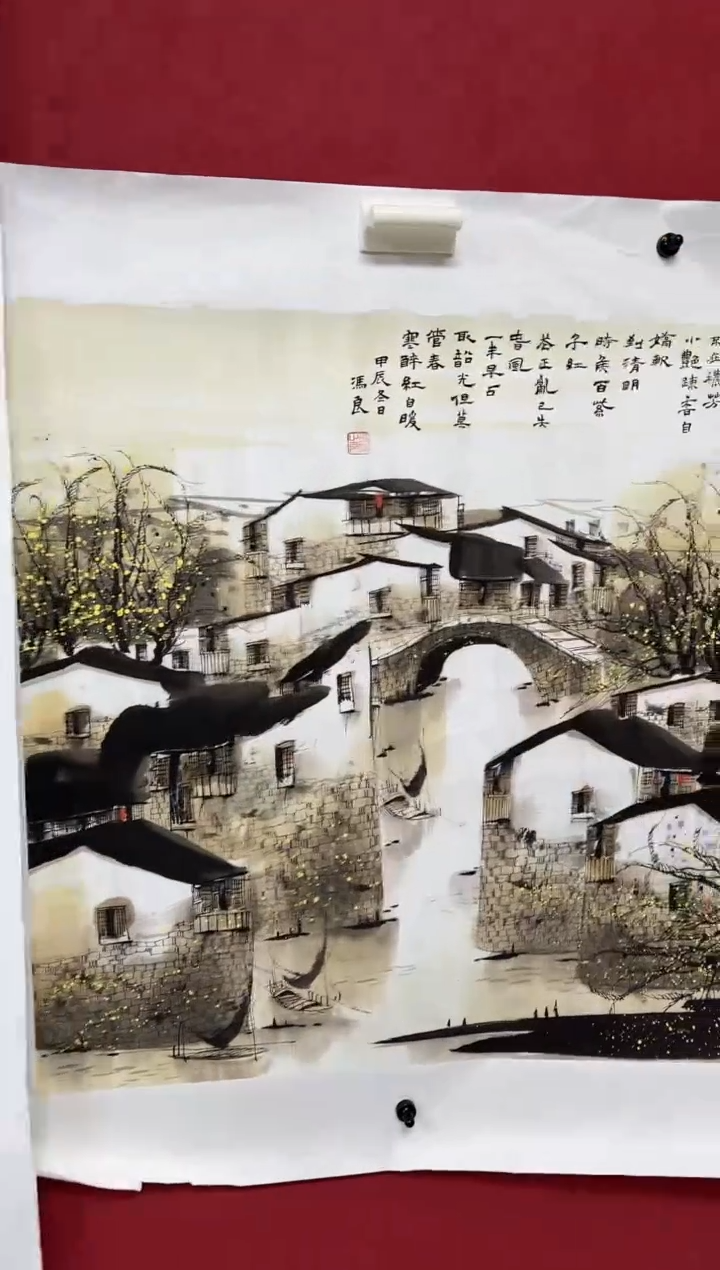 不在襛芳
小艷疎香自
嬌軟
到清明
時候百紫
千紅
花正亂已失
春風
一半早占
取韶光但莫
管春
寒醉紅自暖
甲辰冬日
馮良